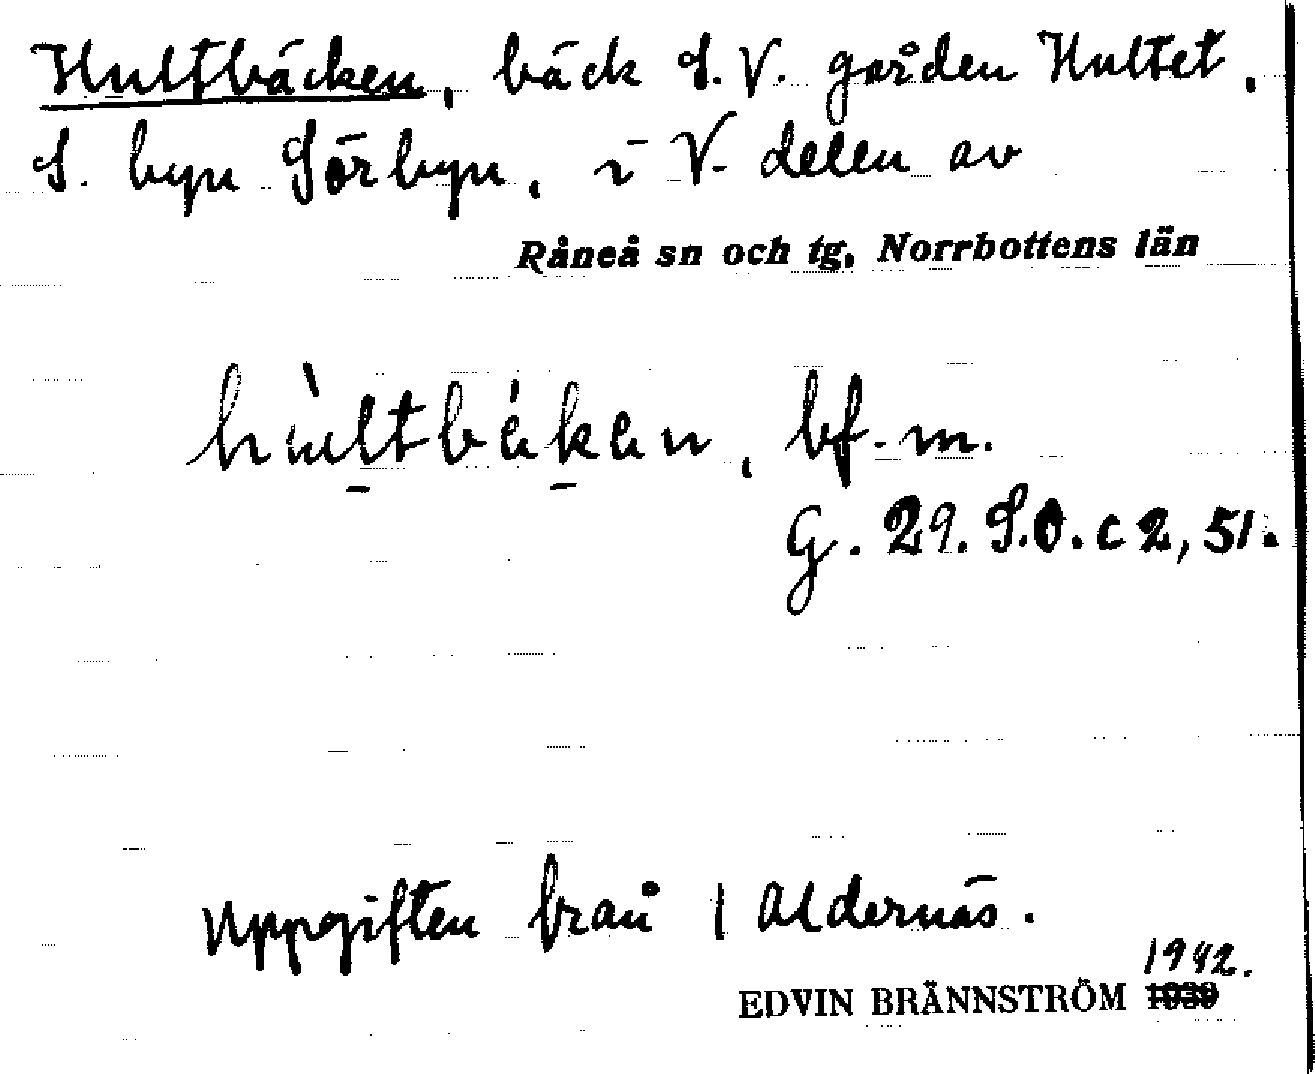 Hultbäcken, bäck S.V. gården Hultet,
S. byn Sörbyn, i V. delen av
Råneå sn och tg, Norrbottens län
bf. m.
G. 29. S.O. c 2, 51.
Uppgiften från 1 Aldernäs.
1942.
EDVIN BRÄNNSTRÖM 1939